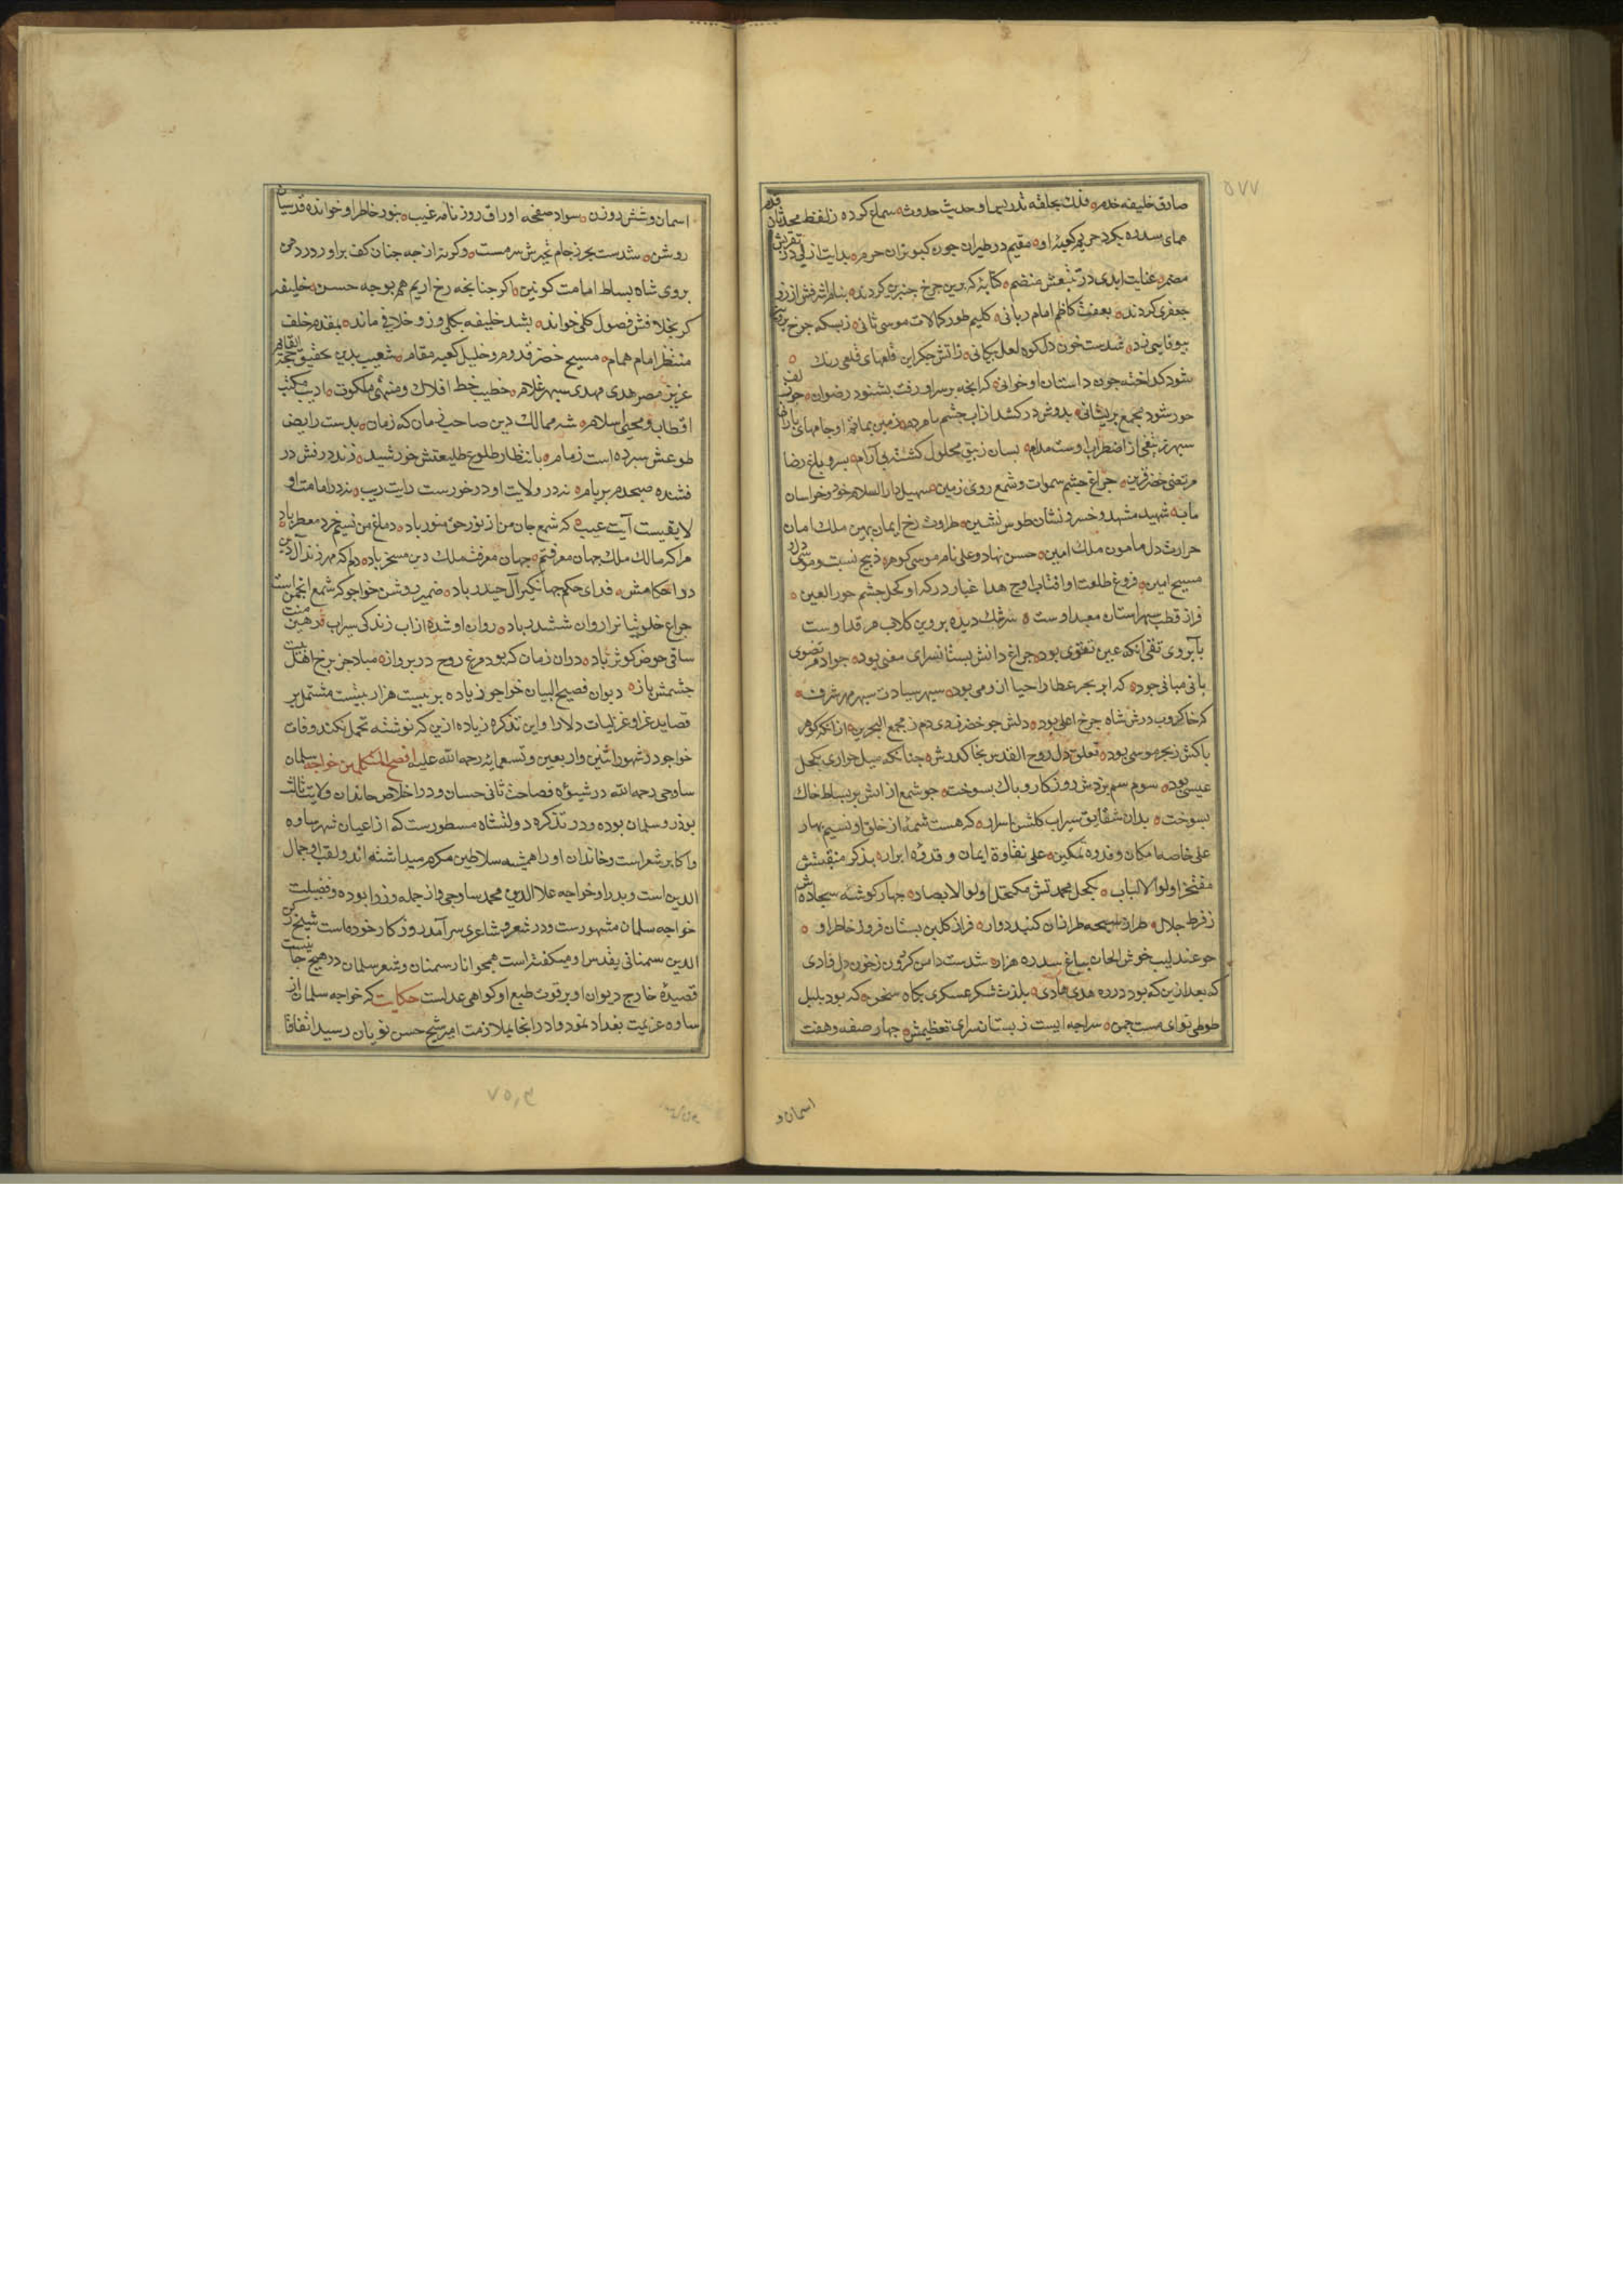 ۵۷۷
صادق خلیفه خدم ه فلک بحلقه تدریسها و حدیث حدوث ه سماع کرده ز لفظ محدثان قدم
همای سدره بکرد حریم کعبه او ه مقیم در طیران چون کبوتران حرم ه بدایت ازلی در
مضمر ه عنایت ابدی در تتبعش منضم ه کتابه که برین چرخ چنبری کردند ه بنام اشرفش از زر
جعفری کردند ه بعفت کاظم امام ربانی ه کلیم طور کمالات موسی ثانی ه زبسکه چرخ
شدست خون دل کوه لعل پیکانی ه ز آتش جکر این قلعهای قلعی رنک ه
شود کداخته چون داستان او خوانی ه کر آنچه بر سر او رفت بشنود رضوان ه چون
حور شود مجمع پریشانی ه بدوش در کشد از آب چشم ما مردم ه زمین بماتم او جامهای
سپهر ز اضطراب اوست مدام ه بسان زیبق محلول کشته بی آرام ه بسرو باغ رضا
مرتضی خضر قرین ه چراغ چشم سموات و شمع روی زمین ه سهیل دار السلام خود و خراسان
ماه شهید مشهد و خسرو نشان طوس نشین ه طراوت رخ ایمان بهین ملک امان
حرارت دل مامون ملک امین ه حسن نهاد و علی نام موسی کوهر ه ذبیح نسبت و موسی دل و
مسیح امین ه فروغ طلعت او افتاب اوج هدا غبار درکه او کحل چشم حور العین ه
فراز قطب سپهر استان معبد اوست ه سرشک دیده پروین کلاب مرقد اوست
بآبروی تقی انکه عین تقوی بود ه چراغ دانش بستانسرای معنی بود ه جواد مرتضوی
بانی مبانی جود ه که ابر بحر عطا را حیا ازو می بود ه سپهر سیادت سپهر مهر شرف ه
که خاکروب درش شاه چرخ اعلی بود ه دلش چو خضر زدی دم ز مجمع البحرین ه از انکه کوهر
پاکش ز بحر موسی بود ه تعلق دل روح القدس بخاک درش ه چنانکه میل حواری بکحل
عیسی بود ه سوم سم بزدش روزکار و پاک بسوخت ه چو شمع از آتش بر بساط خاک
بسوخت ه بدان شقایق سیراب کلشن اسرار ه که هست شمه از خلق او نسیم بهار
علی خاصه امکان و قدوه تمکین ه علی نقاوة ایمان و قدوه ابرار ه بذکر منقبتش
مفتخر اولوا الالباب ه بکحل محمدتش مکتحل اولوا الابصار ه چهار کوشه سجاده اش
ز فرط جلال ه طراز طرازان کنبد دوار ه فراز کلبن بستان فروز خاطر او ه
چو عندلیب خوش الحان بباغ سدره هزار ه شدست دامن کردون ز خون دل قادی
که بعد ازین که بود در ره هدی هادی ه بلذت شکر عسکری بکاه سخن ه که بود بلبل
طوطی نوای مست چمن ه سراچه ایست ز بستان سرای تعظیمش ه چهار صفه و هفت
اسمان و
اسمان و شش روزن ه سواد صفحه اوراق روزنامه غیب ه بنور خاطر او خوانده قدسیان
روشن ه شدست بحر ز جام تبحرش سرمست ه وکرنه از چه چنان کف براورد ز دهن
بروی شاه بساط امامت کونین ه اکر چنانچه رخ اریم هم بوجه حسن ه خلیفه
کر بخلافش فصول کلی خواند ه بشد خلیفه بکلی وزو خلافی ماند ه بمقدم خلف
منتظر امام همام ه مسیح خضر قدوم و خلیل کعبه مقام ه شعیب بدین تحقیق حجة القایم
عزیز مصر هدی مهدی سپهر غلام ه خطیب خط افلاک و منهی ملکوت ه ادیب مکتب
اقطاب و محیی اسلام ه شه ممالک دین صاحب زمان که زمان ه بدست رایض
طوعش سپرده است زمام ه بانتظار طلوع طلیعتش خورشید ه زند درفش در
فشنده صبحدم بر بام ه نه در ولایت او در خورست رایت ریب ه نه در امامت او
لایقیست آیت عیب ه که شمع جان من از نور حق منور باد ه دماغ من نسیم خرد معطر باد
مرا که مالک ملک جهان معرفتم ه جهان معرفت ملک دین مسخر باد ه دلم که مهر زند آل
دوا حکامش ه فدای حکم جهانکیر آل حیدر باد ه ضمیر روشن خواجو که شمع انجمن است
چراغ خلوتیان روان ششدر باد ه روان او شده از آب زندکی سیراب ه رهین منت
ساقی حوض کوثر باد ه دران زمان که بود مرغ روح در پرواز ه مباد جز برخ اهل بیت
چشمش باز ه دیوان فصیح البیان خواجو زیاده بر بیست هزار بیتست مشتمل بر
قصاید غرا و غزلیات دلارا و این تذکره زیاده ازین که نوشته تحمل نکند وفات
خواجو در شهور اثنین و اربعین و تسعمایه رحمه الله علیه افصح المتکلمین خواجه سلمان
ساوجی رحمه الله در شیوه فصاحت ثانی حسان و در اخلاص خاندان ولایت ثالث
بوذر و سلمان بوده و در تذکره دولتشاه مسطورست که از اعیان شهر ساوه
و اکابر شعراست و خاندان او را همیشه سلاطین مکرم میداشته اند و لقب او جمال
الدین است و پدر او خواجه علاالدین محمد ساوجی و از جمله وزرا بوده و فضیلت
خواجه سلمان مشهورست و در شعر و شاعری سرآمد روزکار خود است شیخ رکن
الدین سمنانی میکفته است همچو انار سمنان و شعر سلمان در هیچ جا نیست
قصیده خارج دیوان او بر قوت طبع او کواهی عدلست حکایت که خواجه سلمان از
ساوه عزیمت بغداد نمود و در آنجا بملازمت امیر شیخ حسن نویان رسید اتفاقا